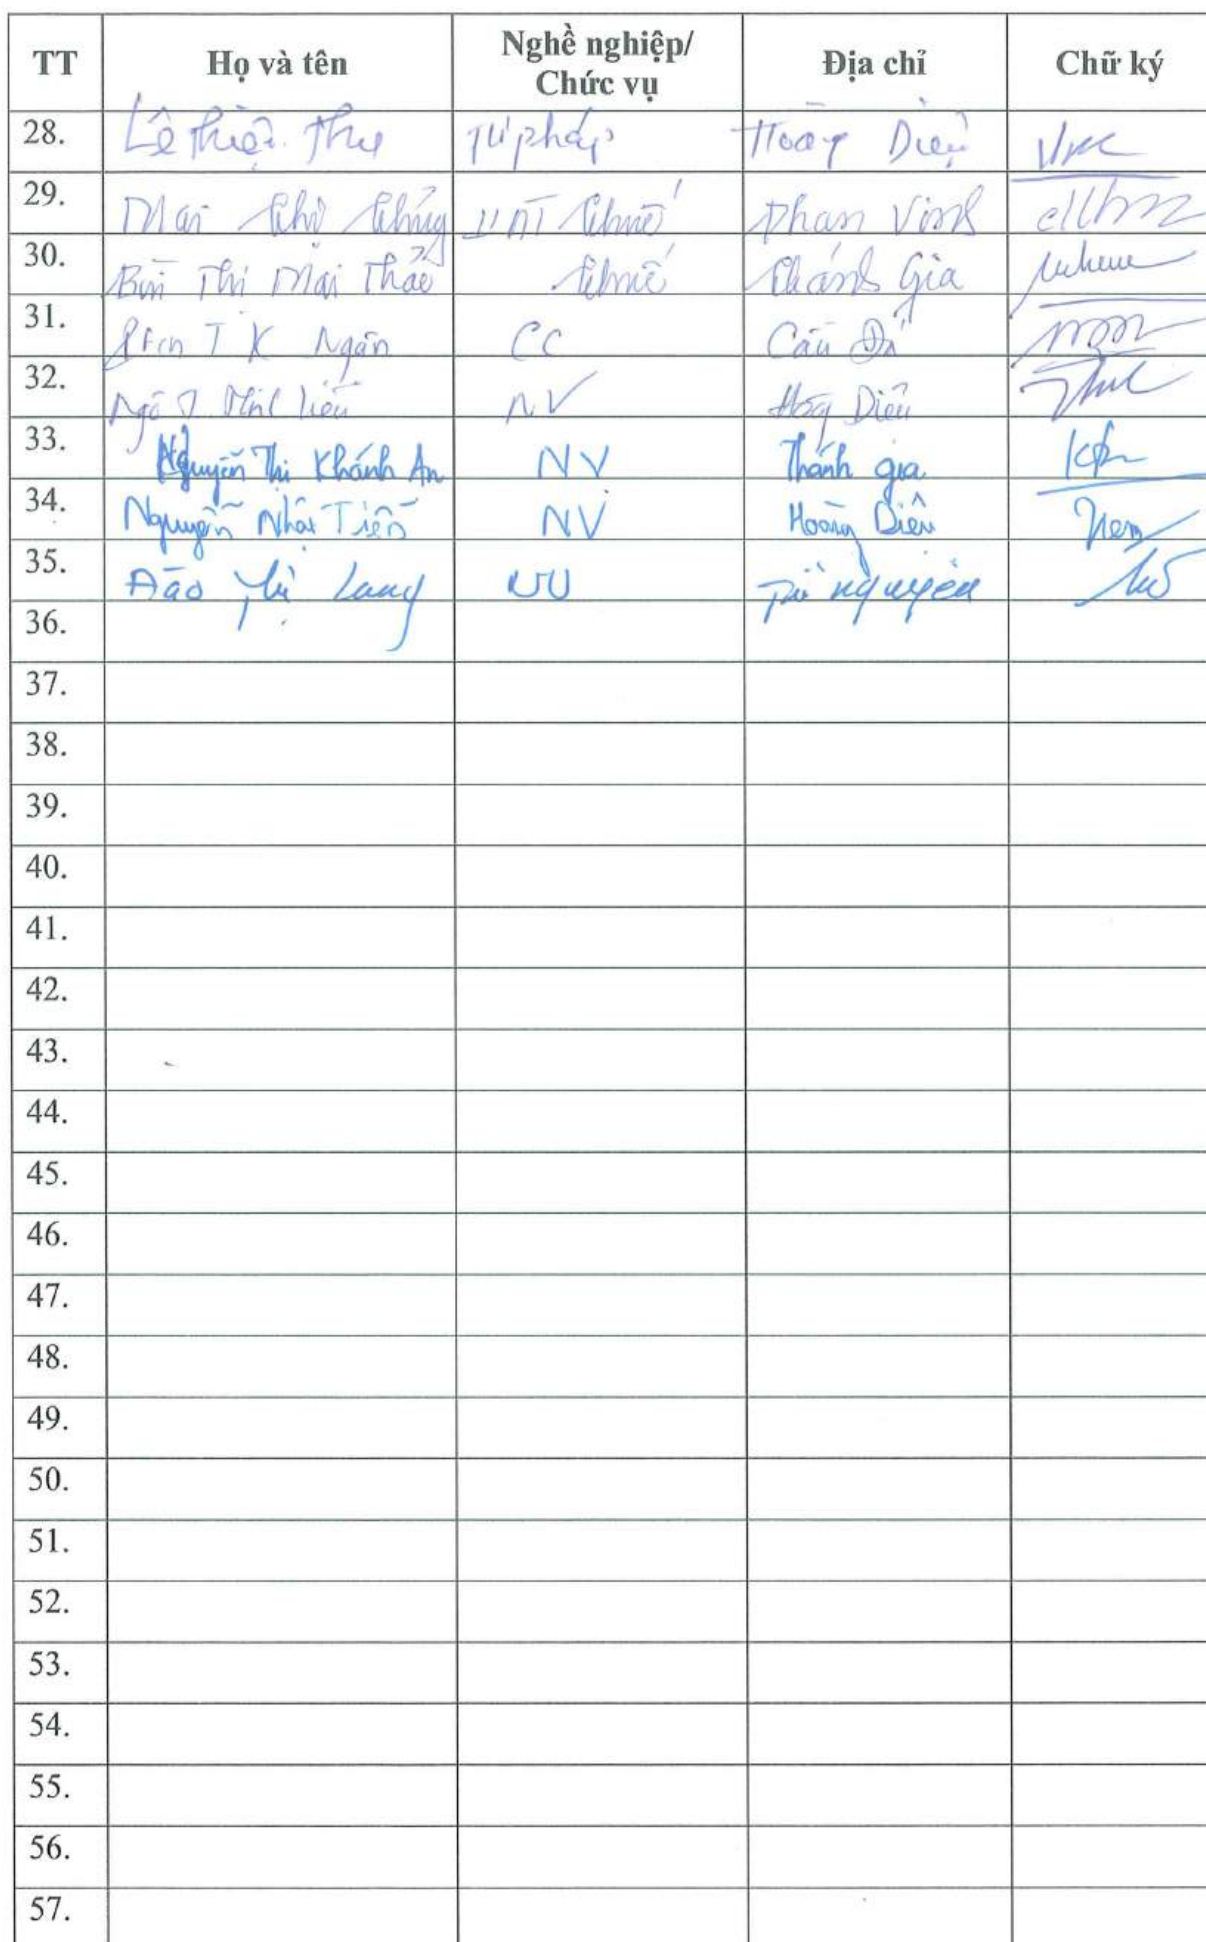 TT Họ và tên Nghề nghiệp/ Chức vụ Địa chỉ Chữ ký
28. Lê Thiện Thu Tư pháp Hoàng Diệu
29. Mai Thị UNT thuế Phan Vinh
30. Bùi Thị Mai Thảo thuế Thánh Gia
31. T K Ngân CC Cầu Đá
32. Ngô T Liễu NV Hoàng Diệu
33. Nguyễn Thị Khánh An NV Thánh gia
34. Nguyễn Nhật Tiến NV Hoàng Diệu
35. Đào Thị Lang NV nguyên
36.
37.
38.
39.
40.
41.
42.
43.
44.
45.
46.
47.
48.
49.
50.
51.
52.
53.
54.
55.
56.
57.